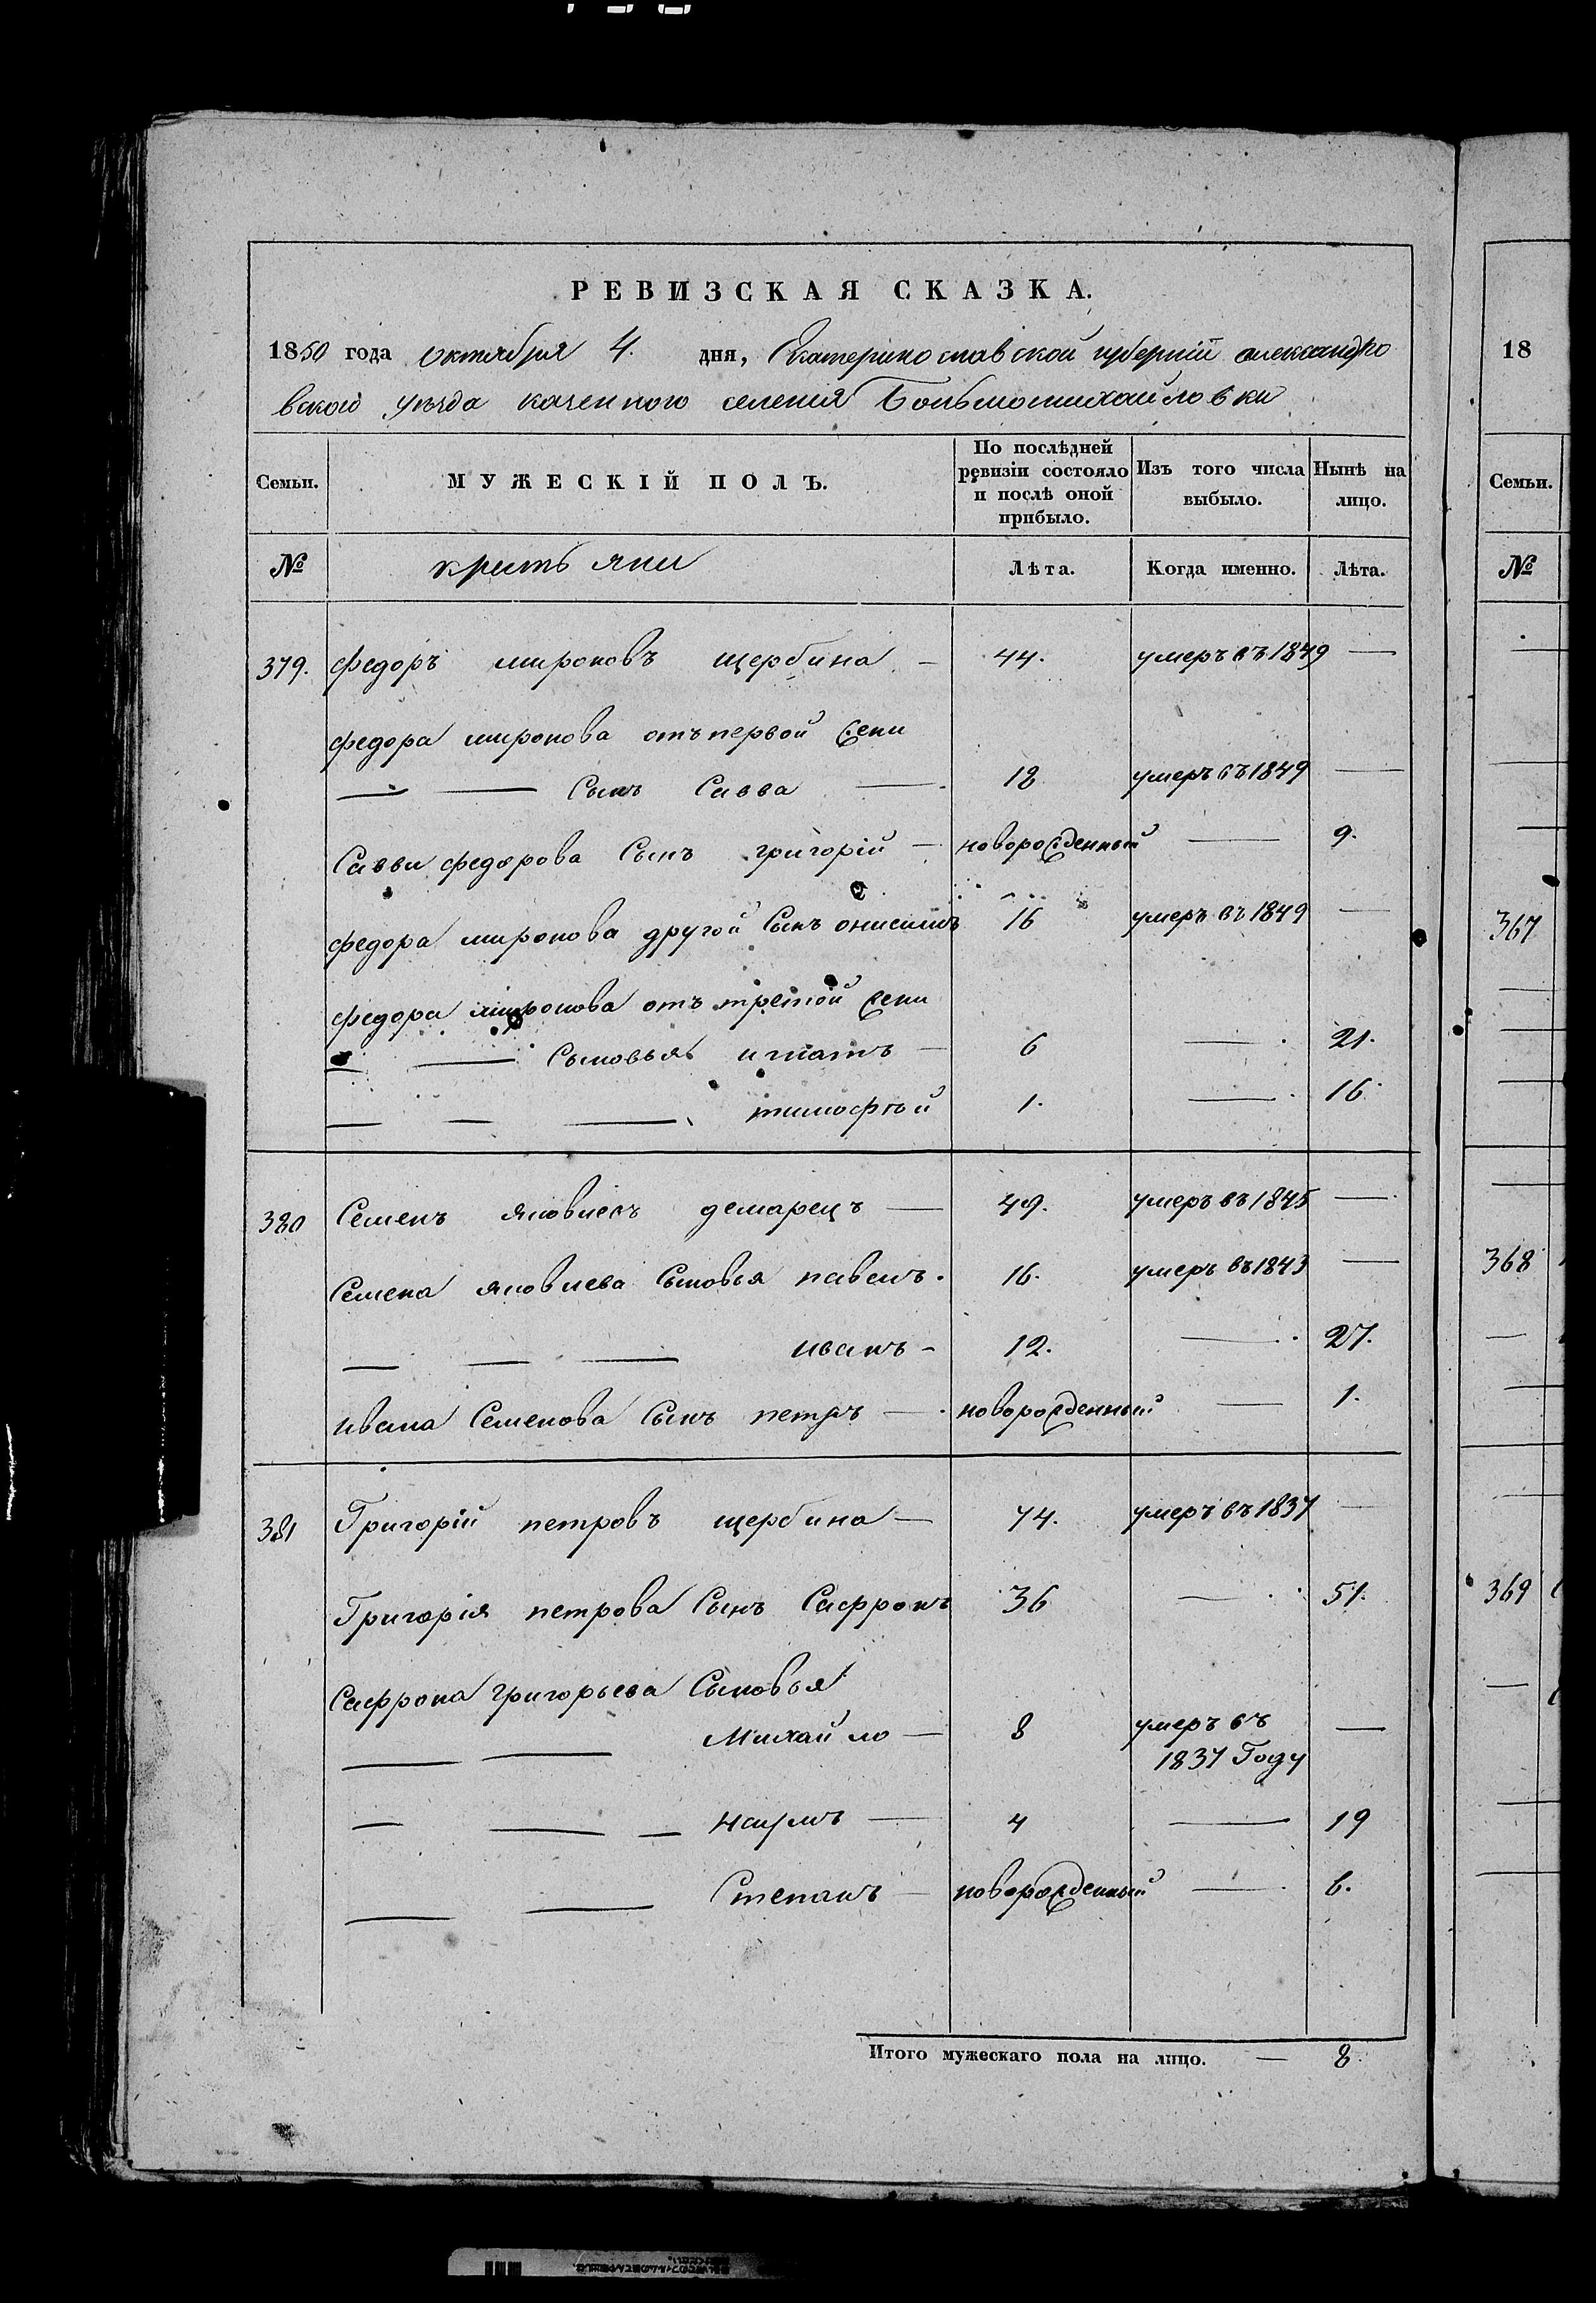 РЕВИЗСКАЯ СКАЗКА.
1850 года октября 4. дня, Екатеринославской губерніи александро
вскаго уѣзда казенного селенія Большомихайловки
Семьи. МУЖЕСКІЙ ПОЛЪ. По послѣдней ревизіи состояло и послѣ оной прибыло. Изъ того числа выбыло. Нынѣ на лицо.
№ Лѣта. Когда именно. Лѣта.
379. федоръ мироновъ щербина — 44. умеръ въ 1849 —
федора миронова отъ первой жени
— — Сынъ Савва — 18 умеръ въ 1849 —
Савви федорова Сынъ григорій — новорожденный — 9.
федора миронова другой Сынъ онисимъ 16 умеръ въ 1849 —
федора миронова отъ третой жени
— — Сыновья игнатъ — 6 — 21.
— — — тимофѣй 1. — 16
380 Семенъ яковлевъ демарецъ — 49. умеръ въ 1845 —
Семена яковлева Сыновья павелъ. 16. умеръ въ 1843 —
— — — иванъ - 12. — 27.
ивана Семенова Сынъ петръ — новорожденный — 1.
381 Григорій петровъ щербина — 74. умеръ въ 1837 —
Григорія петрова Сынъ Сафронъ 36 — 51.
Сафрона григорьева Сыновья
— — Михайло — 8 умеръ въ —
1837 Году
— — — наумъ — 4 — 19
— — Степанъ — новорожденный — 6.
Итого мужескаго пола на лицо. — 8
18
Семьи.
№
367
368
369